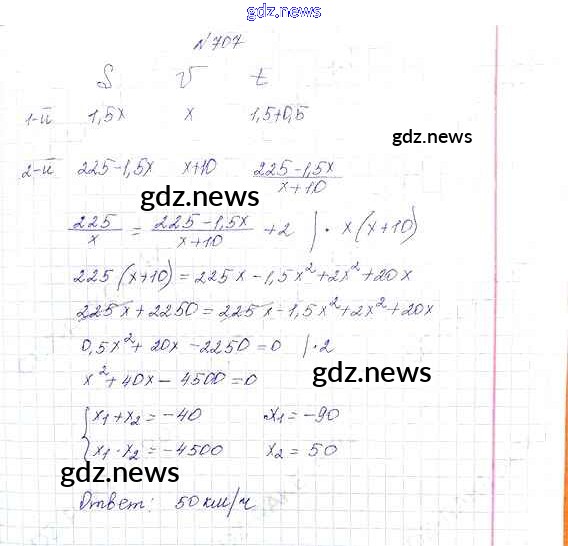 gdz.news
N 707
S V t
1-й 1,5x x 1,5+0,5
gdz.news
2-й 225-1,5x x+10 (225-1,5x)/(x+10)
gdz.news
225/x = (225-1,5x)/(x+10) +2 | · x (x+10)
225 (x+10) = 225x - 1,5x² + 2x² + 20x
225x + 2250 = 225x - 1,5x² + 2x² + 20x
0,5x² + 20x - 2250 = 0 | ·2
x² + 40x - 4500 = 0
gdz.news
{ x₁ + x₂ = -40 x₁ = -90
x₁ · x₂ = -4500 x₂ = 50
gdz.news
Ответ: 50 км/ч